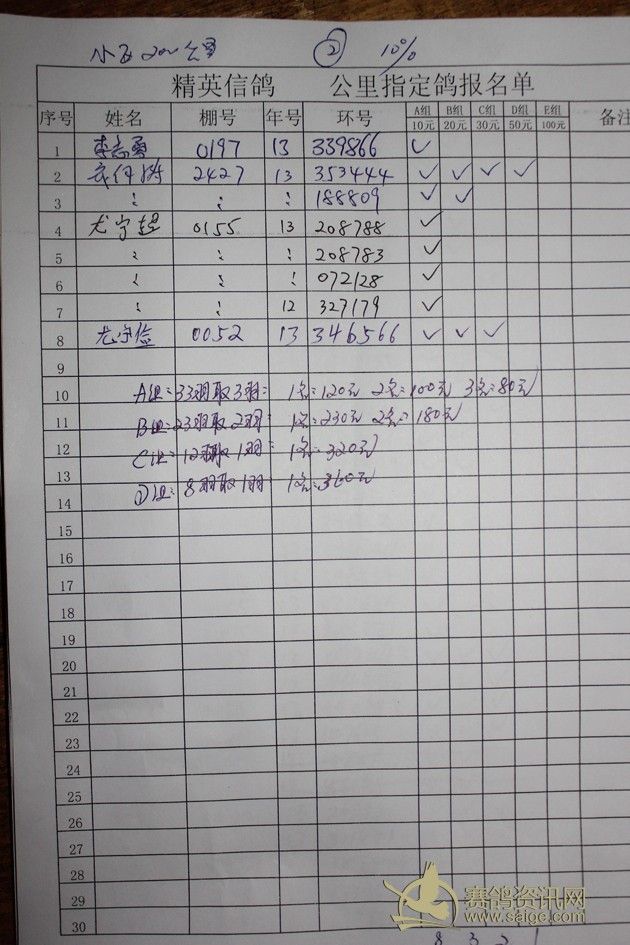 200公里 ② 10%
精英信鸽 公里指定鸽报名单
序号 姓名 棚号 年号 环号 A组 10元 B组 20元 C组 30元 D组 50元 E组 100元 备注
1 李志勇 0197 13 339866 ✓
2 2427 13 353444 ✓ ✓ ✓ ✓
3 〃 〃 〃 188809 ✓ ✓
4 尤守超 0155 13 208788 ✓
5 〃 〃 〃 208783 ✓
6 〃 〃 〃 072128 ✓
7 〃 〃 12 327179 ✓
8 尤守俭 0052 13 346566 ✓ ✓ ✓
9
10 A组:33羽取3羽: 1名:120元 2名:100元 3名:80元
11 B组:23羽取2羽: 1名:230元 2名:180元
12 C组:12羽取1羽: 1名:320元
13
14 D组:8羽取1羽: 1名:360元
15
16
17
18
19
20
21
22
23
24
25
26
27
28
29
30
赛鸽资讯网
www.saige.com
8 3 2 1